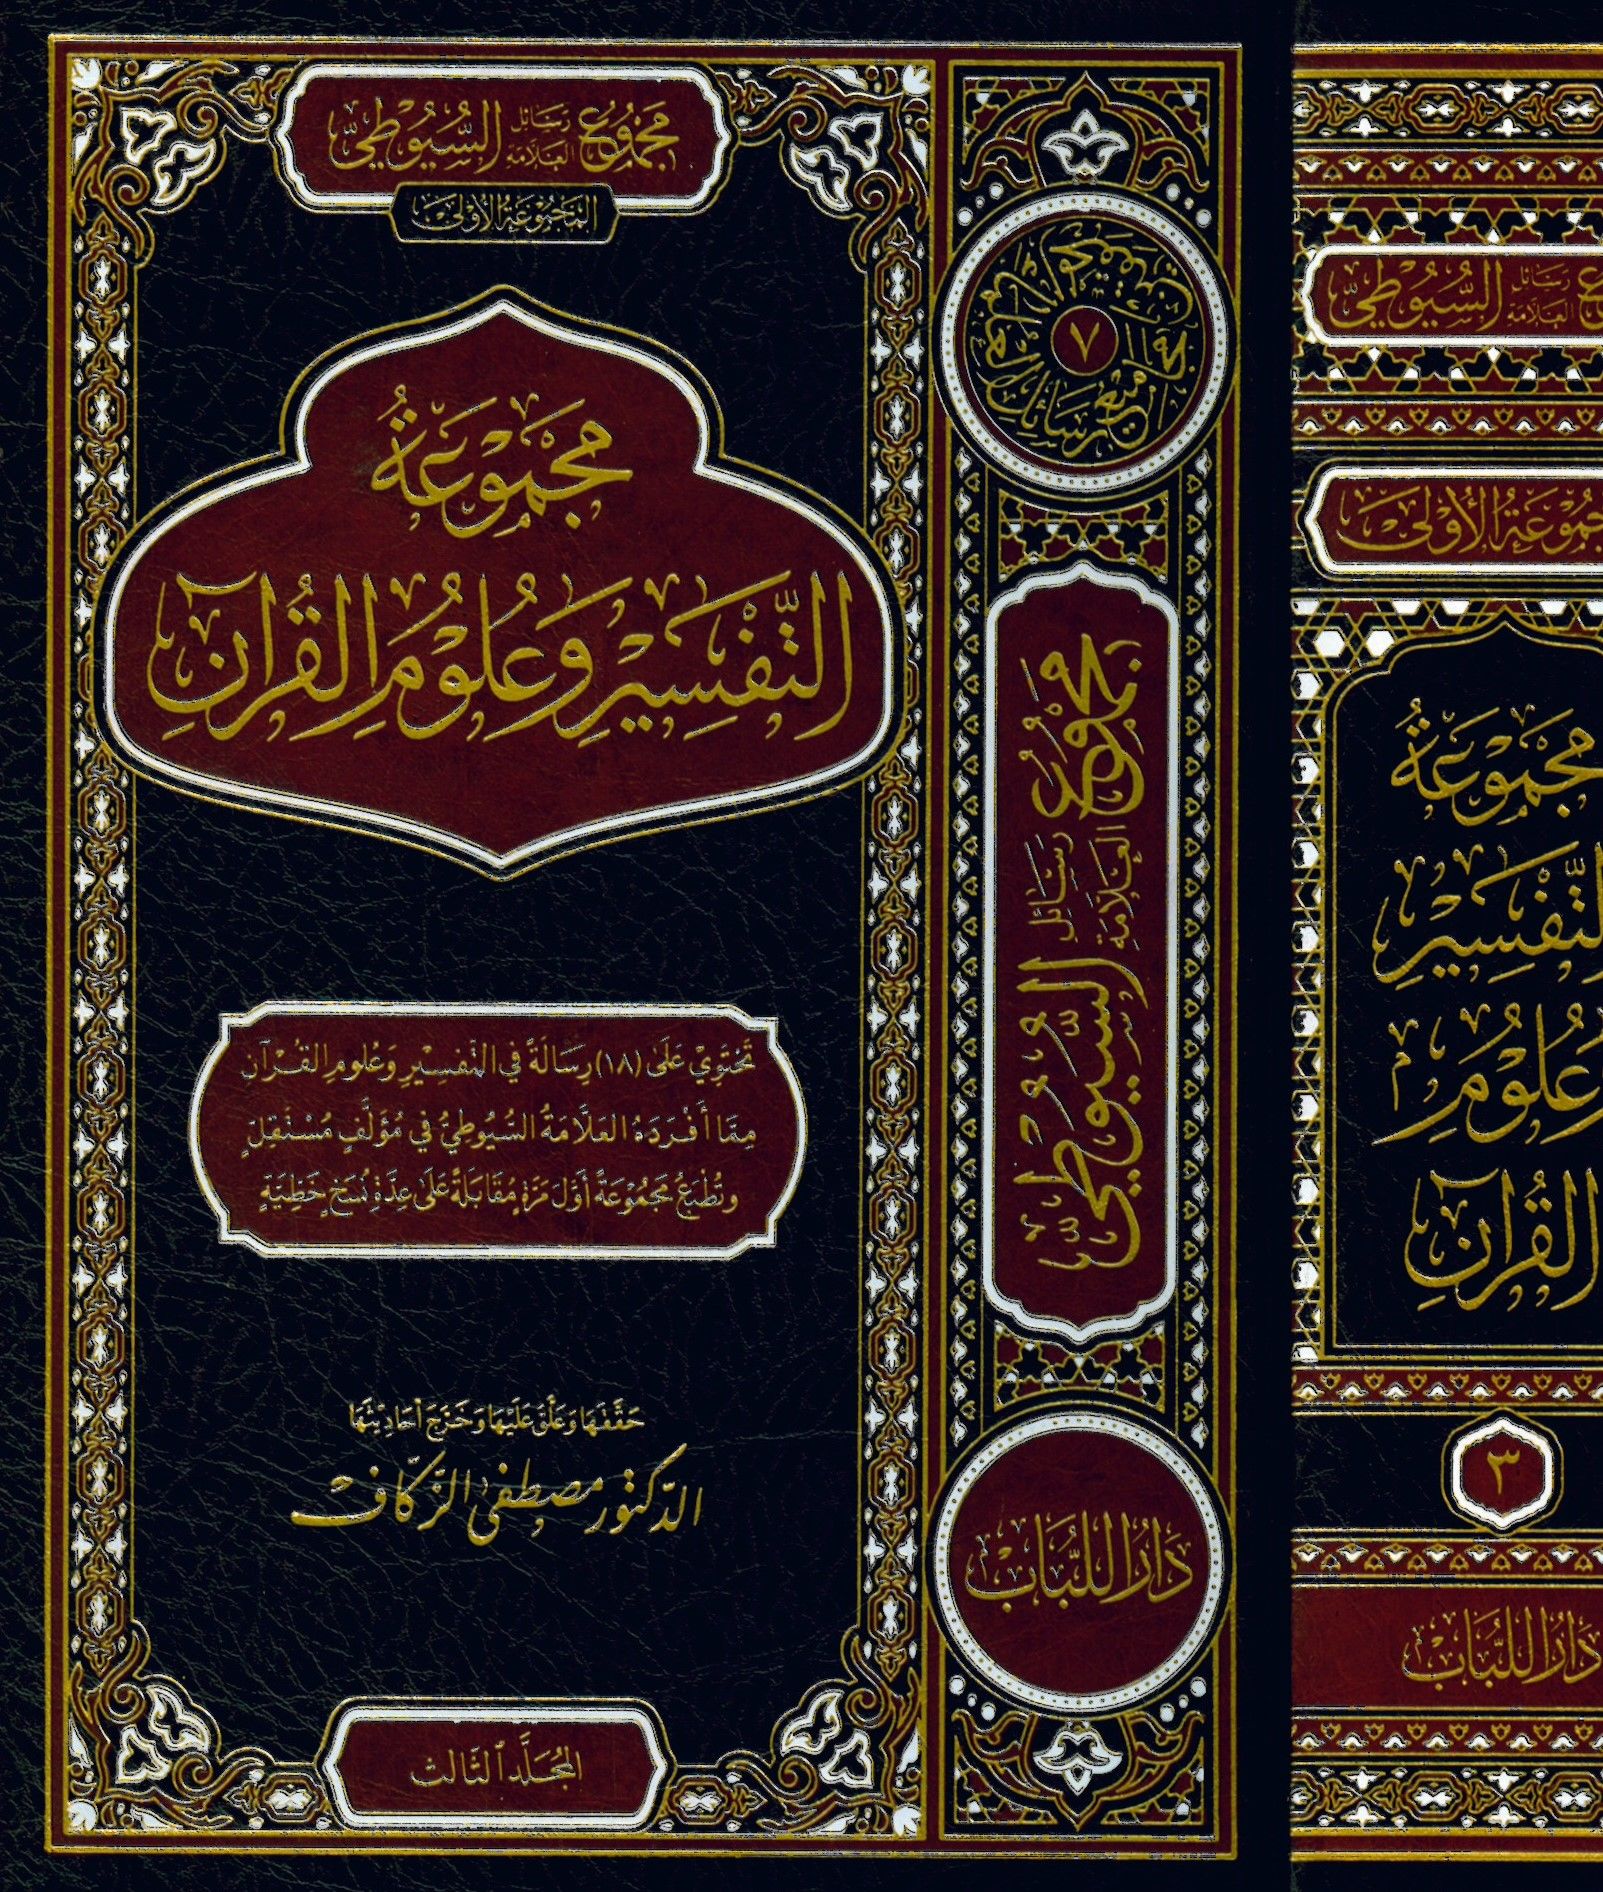 مَجْمُوعُ رَسَائِلِ العَلَّامَة السُّيُوطِيّ
المَجْمُوعَةُ الأُولَى
مَجْمُوعَةُ
التَّفْسِيرِ وَعُلُومِ القُرآنِ
تَحْتَوِيْ عَلَىٰ (١٨) رِسَالَةً فِي التَّفْسِيْرِ وَعُلُومِ القُرْآنِ
مِمَّا أَفْرَدَهُ العَلَّامَةُ السُّيُوطِيُّ فِي مُؤَلَّفٍ مُسْتَقِلٍّ
وتُطْبَعُ مَجْمُوعَةً أَوَّلَ مَرَّةٍ مُقَابَلَةً عَلَى عِدَّةِ نُسَخٍ خَطِّيَّةٍ
حَقَّقَهَا وَعَلَّقَ عَلَيْهَا وَخَرَّجَ أَحَادِيْثَهَا
الدكتور مصطفى الزكاف
المُجَلَّدُ الثَّالِث
٧
مَجْمُوعُ رَسَائِلِ العَلَّامَةِ السُّيُوطِيّ
دَارُ اللُّبَابِ
رَسَائِلِ العَلَّامَة السُّيُوطِيّ
الأُولَى
مَجْمُوعَةُ
التَّفْسِيرِ
وَعُلُومِ
القُرآنِ
٣
دَارُ اللُّبَابِ